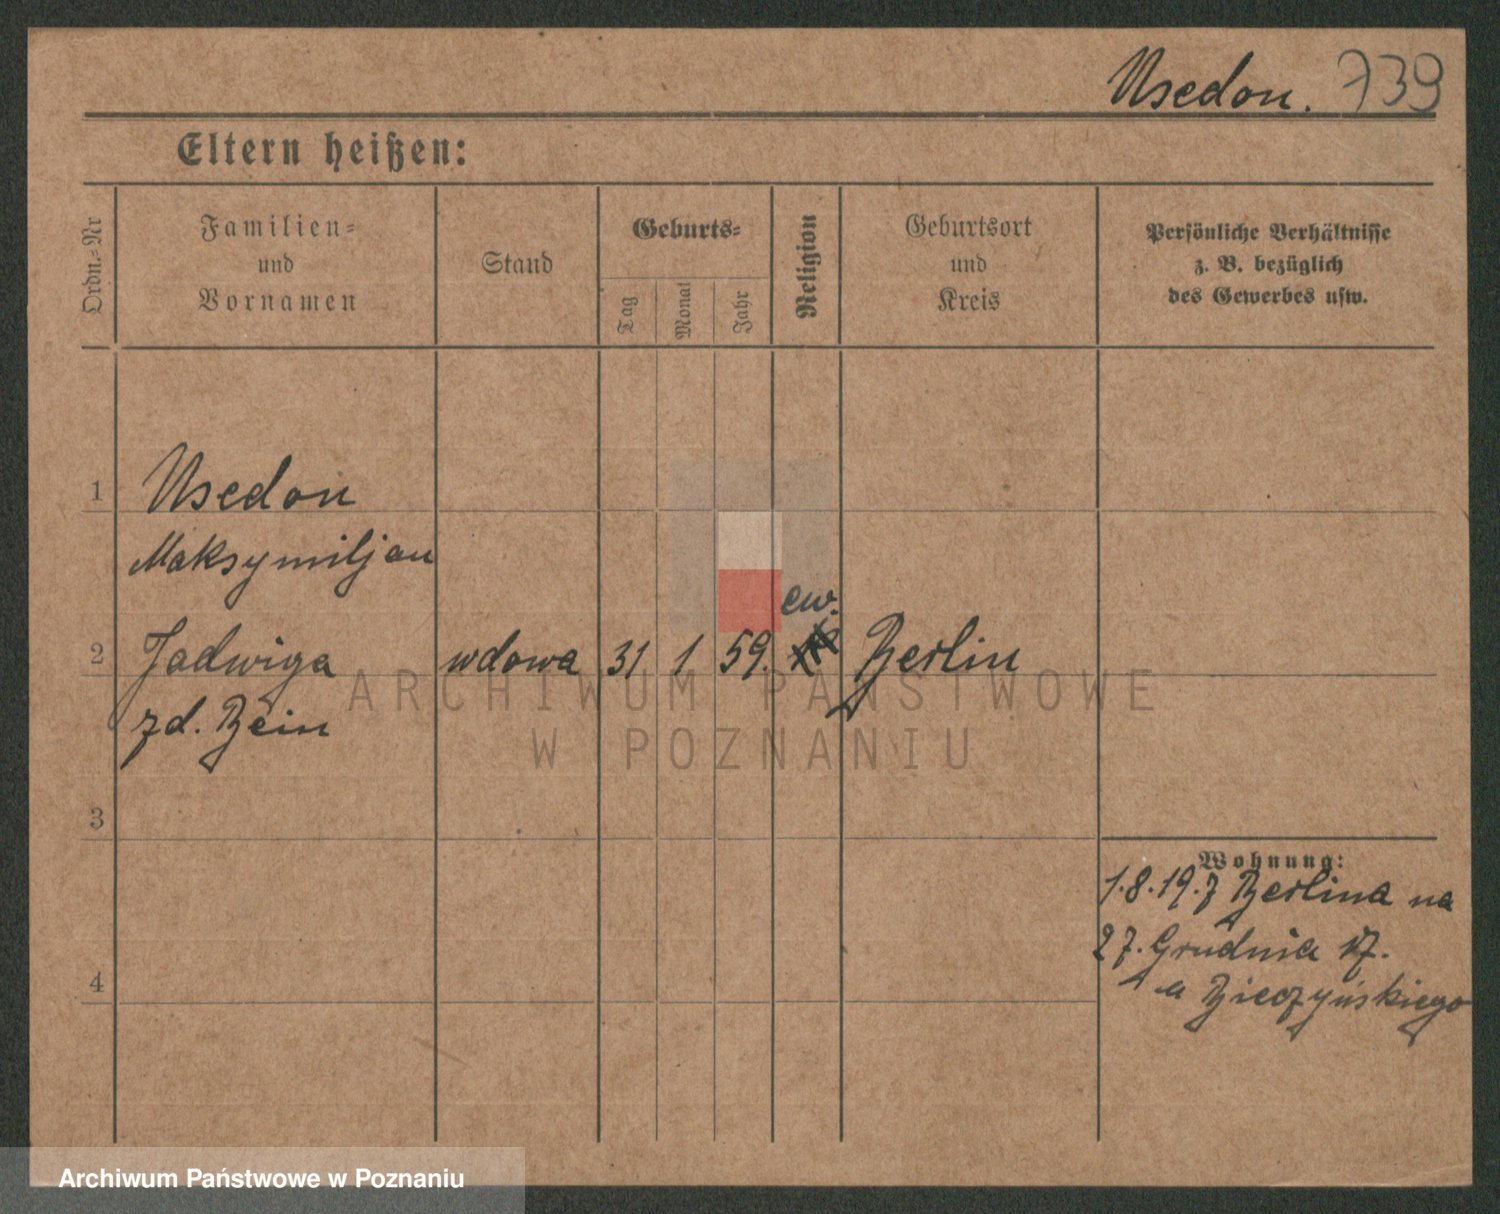 Usedon. 739
Eltern heißen:
Ordn.-Nr
Familien-
und
Vornamen
Stand
Geburts-
Tag
Monat
Jahr
Religion
Geburtsort
und
Kreis
Persönliche Verhältnisse
z. B. bezüglich
des Gewerbes usw.
1 Usedon
Maksymiljan
ew.
2 Jadwiga wdowa 31 1 59. Berlin
zd. Bein
ARCHIWUM PAŃSTWOWE
W POZNANIU
3
Wohnung:
1.8.19. z Berlina na
27. Grudnia 17.
4
u Bieczyńskiego
Archiwum Państwowe w Poznaniu